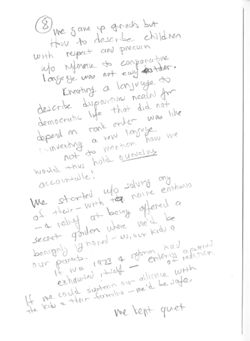 8
We gave up grades but
how to describe children
with respect and precision
w/o reference to comparative
language was not easy either.
Inventing a language to
describe disposition needed for
democratic life that did not
depend on rank order was like
inventing a new language
not to mention how we
would thus hold ourselves
accountable!
We started w/o saying any
of their - with
- a relief at being offered a
secret garden where we'd be
benignly ignored - w/ our kids &
our parents.
It was 1973 & reform had
exhausted itself - entering a period
If we could sustain our alliance with
the kids & their families - we'd be safe.
We kept quiet